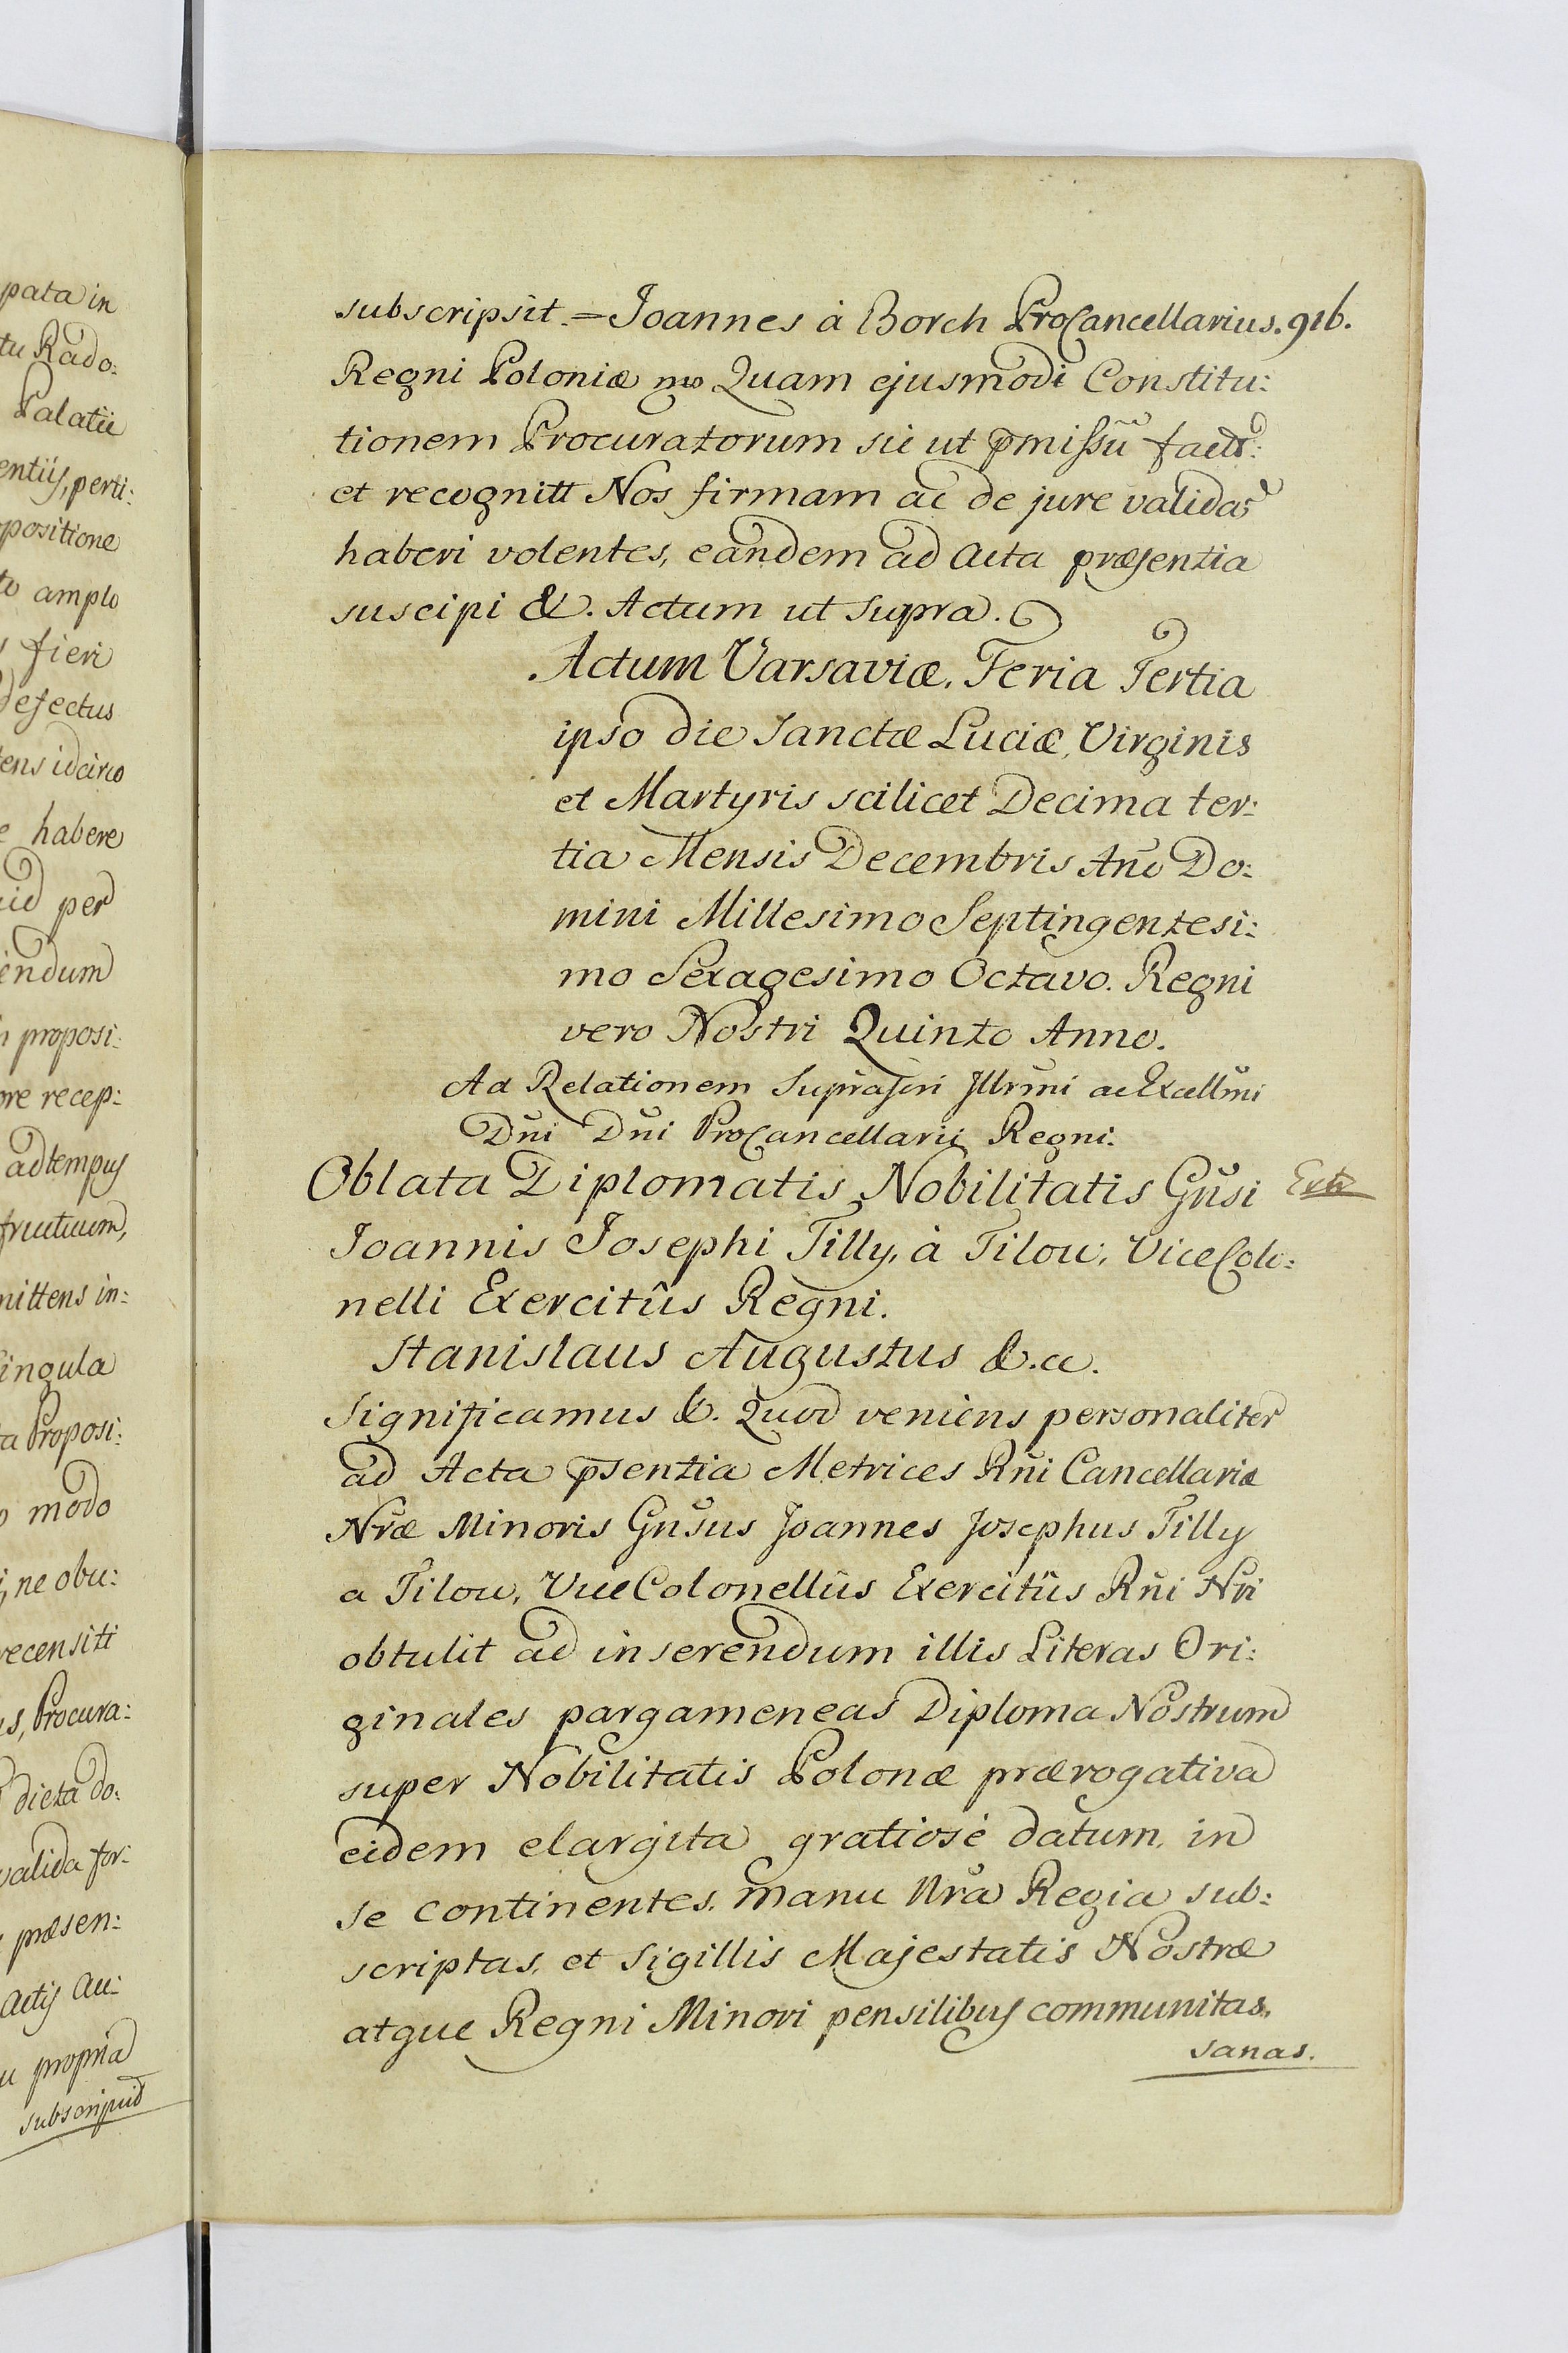 pata in
tu Rado:
Palatii
entiis, perti:
positione
to amplo
fieri
defectus
tens idcirco
habere
uid per
iendum
proposi:
ore recep:
ad tempus
fructuum,
mittens in:
singula
ta Proposi:
modo
ne obu:
recensiti
us, Procura:
dicta do:
valida for:
præsen:
actis au:
u propria
subscripsit
subscripsit. = Joannes à Borch ProCancellarius. 916.
Regni Poloniæ mp Quam ejusmodi Constitu:
tionem Procuratorum sic ut p̄missũ
et recognitt Nos firmam ac de jure validã
haberi volentes, eandem ad Acta præsentia
suscipi &. Actum ut supra.
Actum Varsaviæ, Feria Tertia
ipso die Sanctæ Luciæ, Virginis
et Martyris scilicet Decima ter:
tia Mensis Decembris Añõ Do:
mini Millesimo Septingentesi:
mo Sexagesimo Octavo. Regni
vero Nostri Quinto Anno.
Ad Relationem Suprascri Illrmi ac Excellmi
Dñi Dñi ProCancellarii Regni.
Oblata Diplomatis Nobilitatis Gñsi
Joannis Josephi Tilly, à Tilou, ViceColo:
nelli Exercitûs Regni.
Stanislaus Augustus &.a.
Significamus &. Quod veniens personaliter
ad Acta p̄sentia Metrices Rñi Cancellariæ
Nræ Minoris Gnsus Joannes Josephus Tilly
a Tilou, ViceColonellûs Exercitûs Rñi Nri
obtulit ad inserendum illis Literas Ori:
ginales pargameneas Diploma Nostrum
super Nobilitatis Polonæ prærogativa
eidem elargita gratiosè datum, in
se continentes, manu Nra Regia sub:
scriptas, et sigillis Majestatis Nostræ
atque Regni Minori pensilibus communitas,
sanas.